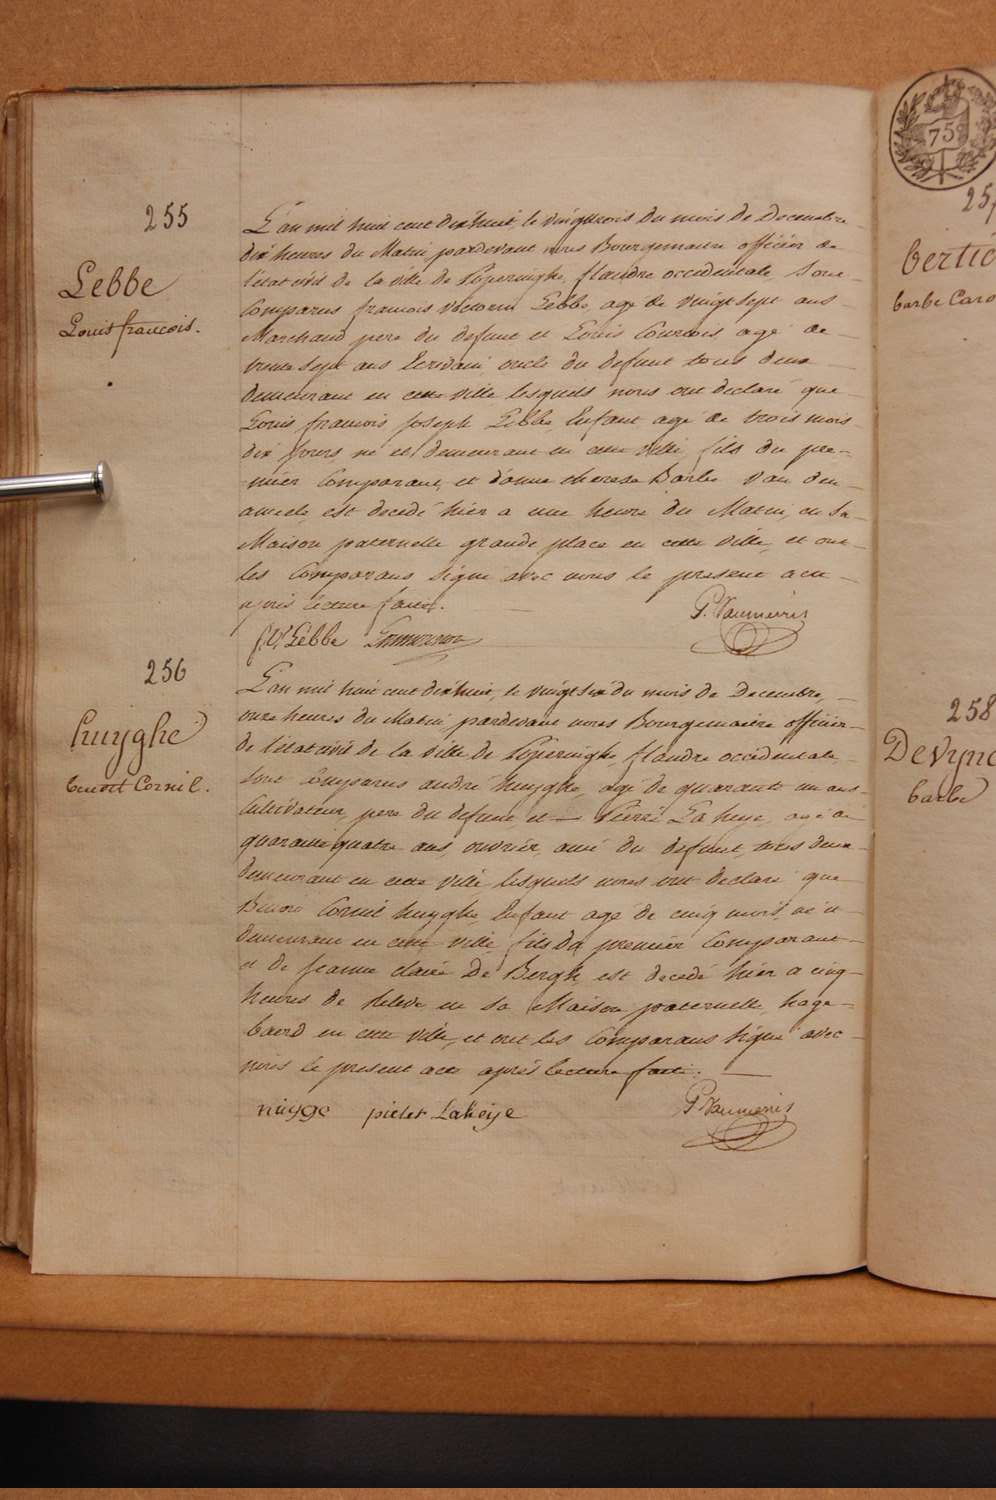 255
Lebbe
Louis francois.
L'an mil huit cent dix huit, le vingttrois du mois de Decembre
dix heures du Matin pardevant nous Bourgemaitre officier de
l'état civil de la ville de Poperinghe, flandre occidentale Sont
Comparus francois victorin Lebbe, age de vingt sept ans
Marchand pere du defunt et Louis agé de
trente sept ans Ecrivain, oncle du defunt tous deux
demeurant en cette ville lesquels nous ont declaré que
Louis francois Joseph Lebbe Enfant age de trois mois
dix jours né et demeurant en cette ville, fils du pre-
mier Comparant, et d'anne therese Barbe Van den
est decedé hier a une heure du Matin, en Sa
Maison paternelle grande place en cette ville, et ont
les Comparans Signé avec nous le present acte
après lecture faite.
f. V. Lebbe
256
huyghe
benoit Cornil.
L'an mil huit cent dix huit, le vingt six du mois de Decembre,
onze heures du Matin, pardevant nous Bourgemaitre officier
de l'état civil de la ville de Poperinghe, flandre occidentale,
Sont Comparus andré huyghe, agé de quarante un ans
Cultivateur, pere du defunt, et — Pierre La heye, agé de
quarante quatre ans, ouvrier, ami du defunt, tous deux
demeurant en cette ville lesquels nous ont declaré que
Benoit Cornil huyghe, Enfant agé de cinq mois, né et
demeurant en cette ville fils du premier Comparant
et de Jeanne claire De Bergh, est decedé hier a cinq
heures de releve, en Sa Maison paternelle, hage-
baerd en cette ville, et ont les Comparans Signé avec
nous le present acte après lecture faite.
pieter Laheije
bertie
barbe Caro
258
Devync
barbe
75